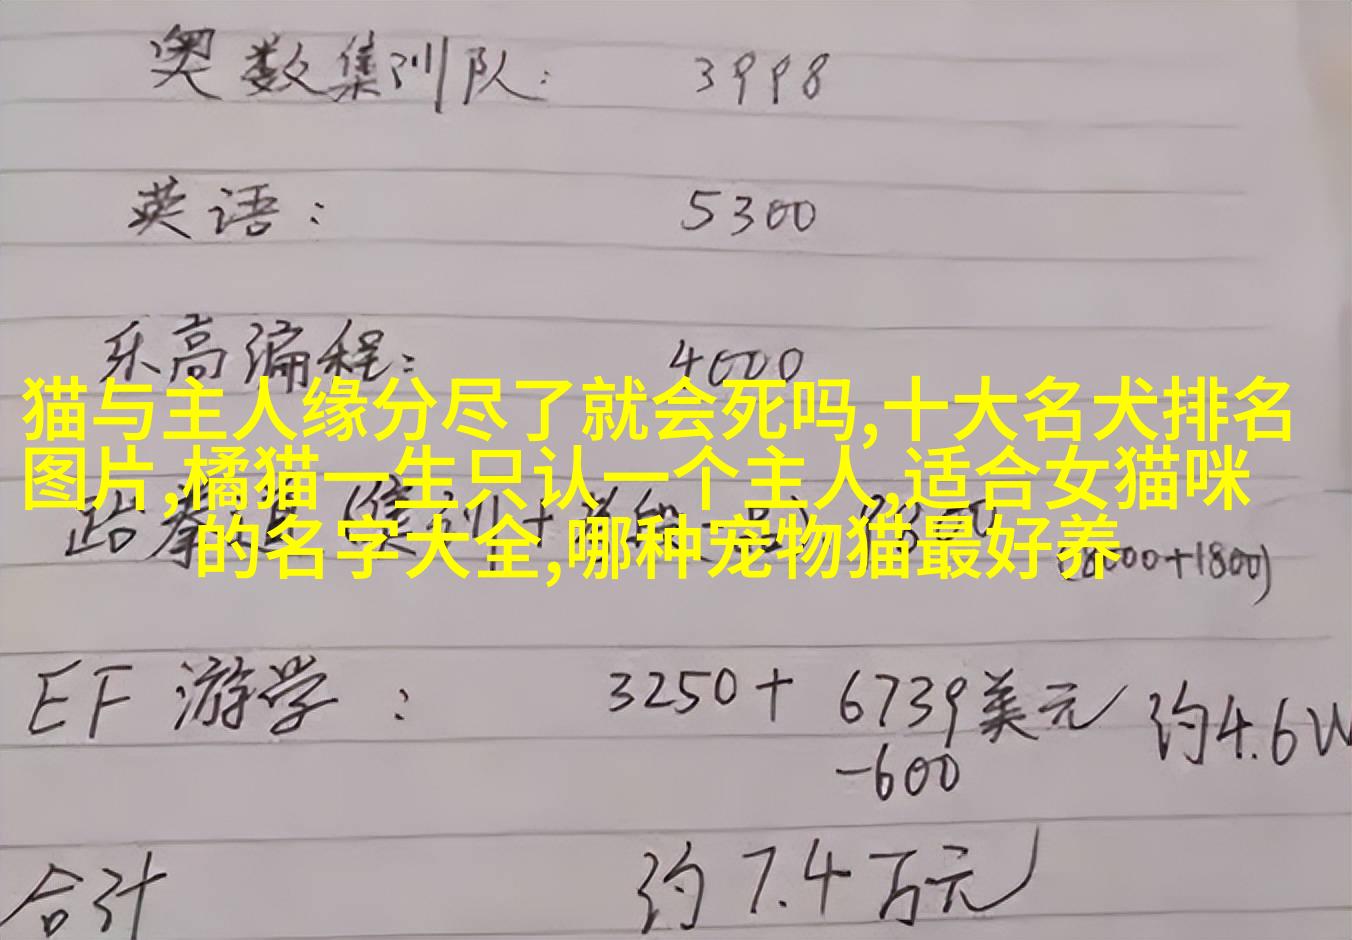 奥数集训队: 3998
英语: 5300
乐高编程: 4000
猫与主人缘分尽了就会死吗,十大名犬排名
图片,橘猫一生只认一个主人,适合女猫咪
的名字大全,哪种宠物猫最好养
跆拳道
+1800)
EF 游学: 3250+ 6739美元 约4.6W
-600
合计 约7.4万元